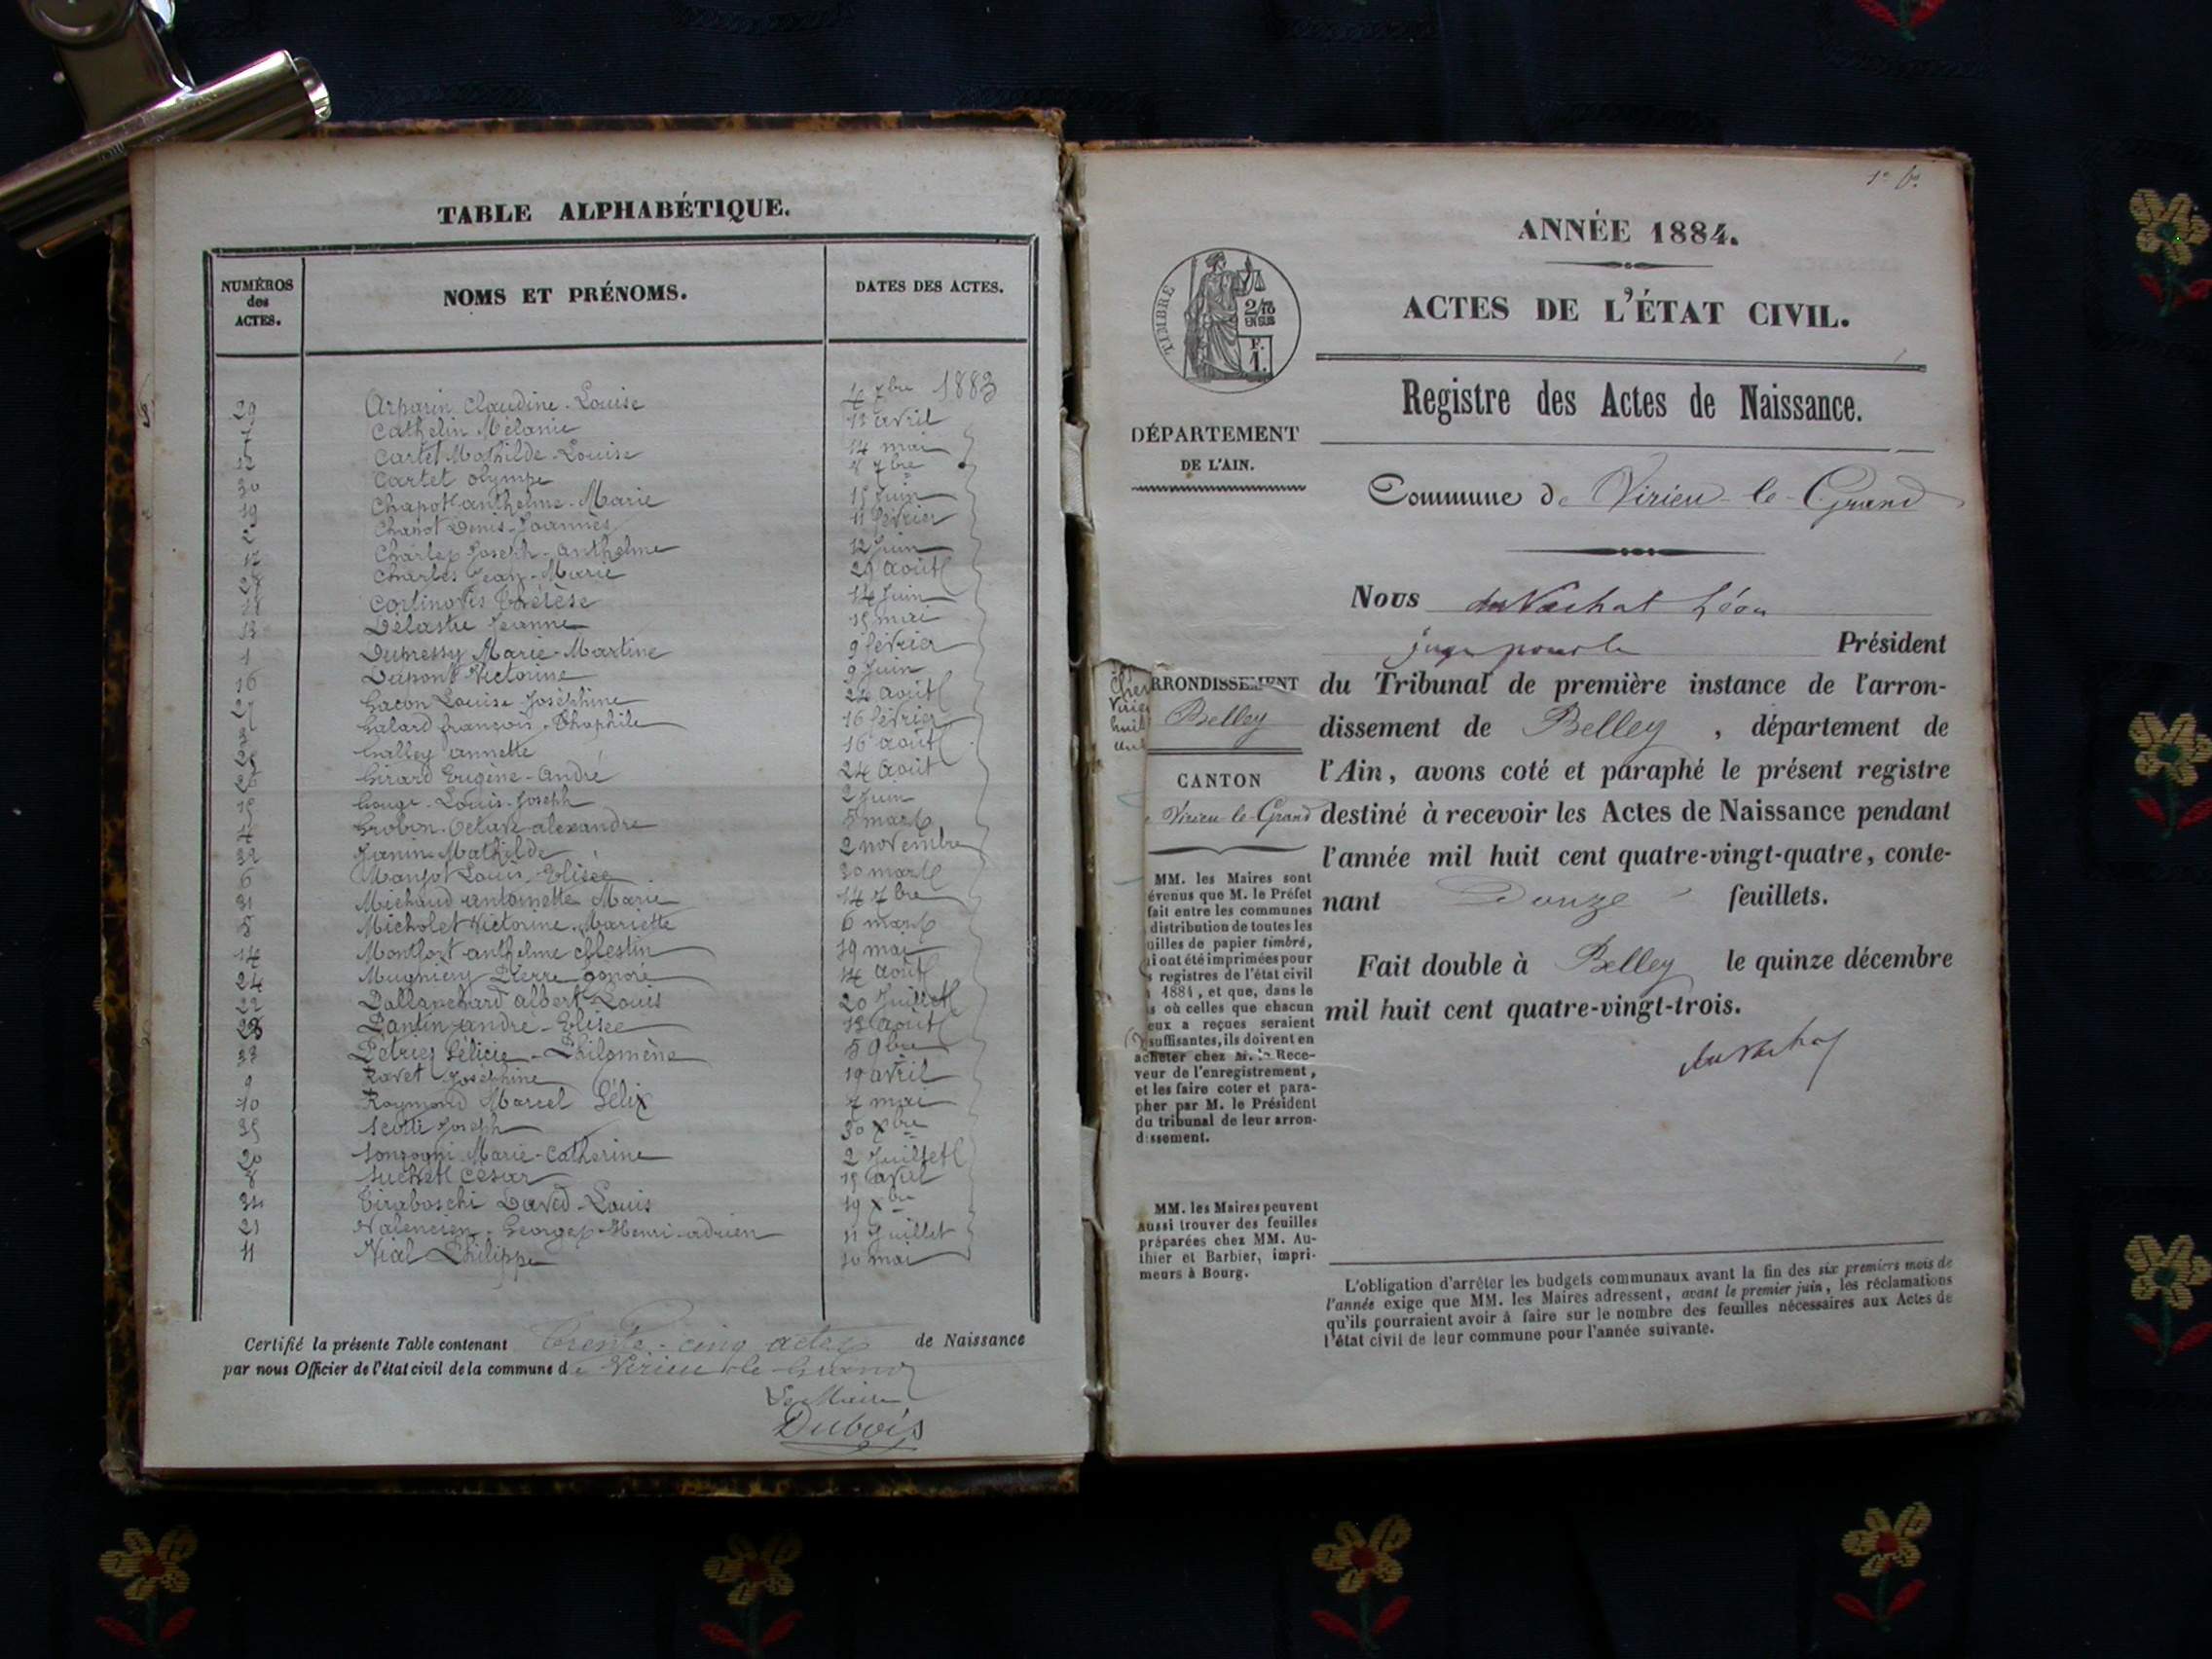 TABLE ALPHABÉTIQUE.
NUMÉROS
des
ACTES.
NOMS ET PRÉNOMS.
DATES DES ACTES.
29 Arparin Claudine-Louise 4 7bre 1883
7 Cathelin Mélanie 13 avril
12 Cartet Mathilde-Louise 14 mai
30 Cartet Olympe 7bre
19 Chapot anthelme-Marie 15 Juin
2 Chapot Denis-Joannès 11 février
17 Charles Joseph-anthelme 12 Juin
Charles Jean-Marie 29 août
18 Cortinovis Thérèse 14 Juin
13 Delastre Jeanne 15 mai
1 Dupressy Marie-Martine 9 février
16 Dupont Victorine 9 Juin
Gacon Louise-Joséphine 24 août
3 Galard françois-Théophile 16 février
25 Galley annette 16 août
26 Girard Eugène-André 24 août
15 Gouge-Louis-Joseph 2 Juin
4 Grobon-Octave alexandre 5 mars
32 Janin Mathilde 2 novembre
6 Louis-Elisée 30 mars
31 Michaud antoinette Marie 14 7bre
5 Micholet Victorine-Mariette 6 mars
14 Montfort anthelme célestin 19 mai
24 Mugniery Pierre honoré 14 août
22 Pallanchard albert-Louis 20 Juillet
23 Pantin andré-Elisée 13 août
33 Pétrier Félicie-Philomène 5 9bre
9 Ravet Joséphine 19 avril
10 Raymond Marcel Félix 7 mai
35 Scotti Joseph 30 Xbre
20 Songogni Marie-Catherine 2 Juillet
8 Suchet César 15 avril
34 Tiraboschi David-Louis 19 Xbre
21 Valencien-Georges-Henri-adrien 11 Juillet
11 Vial Philippe 10 mai
Certifié la présente Table contenant Trente-cinq actes de Naissance
par nous Officier de l'état civil de la commune de Virieu le Grand
Le Maire
Dubois
ANNÉE 1884.
TIMBRE
2/10
EN SUS
F.
1.
ACTES DE L'ÉTAT CIVIL.
Registre des Actes de Naissance.
DÉPARTEMENT
DE L'AIN.
Commune de Virieu-le-Grand
Nous du Vachat Léon
juge pour le Président
du Tribunal de première instance de l'arron-
dissement de Belley, département de
l'Ain, avons coté et paraphé le présent registre
destiné à recevoir les Actes de Naissance pendant
l'année mil huit cent quatre-vingt-quatre, conte-
nant Douze feuillets.
Fait double à Belley le quinze décembre
mil huit cent quatre-vingt-trois.
duVachat
RRONDISSEMENT
Belley
CANTON
Virieu-le-Grand
MM. les Maires sont
évenus que M. le Préfet
fait entre les communes
distribution de toutes les
uilles de papier timbré,
i ont été imprimées pour
s registres de l'état civil
1884, et que, dans le
s où celles que chacun
eux a reçues seraient
suffisantes, ils doivent en
acheter chez M. le Rece-
veur de l'enregistrement,
et les faire coter et para-
pher par M. le Président
du tribunal de leur arron-
dissement.
MM. les Maires peuvent
aussi trouver des feuilles
préparées chez MM. Au-
thier et Barbier, impri-
meurs à Bourg.
L'obligation d'arrêter les budgets communaux avant la fin des six premiers mois de
l'année exige que MM. les Maires adressent, avant le premier juin, les réclamations
qu'ils pourraient avoir à faire sur le nombre des feuilles nécessaires aux Actes de
l'état civil de leur commune pour l'année suivante.